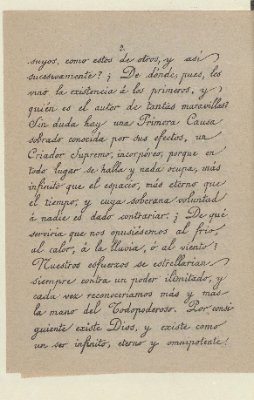 2.
suyos, como estos de otros, y así
sucesivamente? ¿De dónde, pues, les
vino la existencia á los primeros, y
quién es el autor de tantas maravillas?
Sin duda hay una Primera Causa
sobrado conocida por sus efectos, un
Criador Supremo, incorpóreo, porque en
todo lugar se halla y nada ocupa, más
infinito que el espacio, más eterno que
el tiempo, y cuya soberana voluntad
á nadie es dado contrariar. ¿De qué
serviría que nos opusiésemos al frío,
al calor, á la lluvia, ó al viento?
Nuestros esfuerzos se estrellarían
siempre contra un poder ilimitado, y
cada vez reconoceríamos más y más
la mano del Todopoderoso. Por consi
guiente existe Dios, y existe como
un ser infinito, eterno y omnipotente.